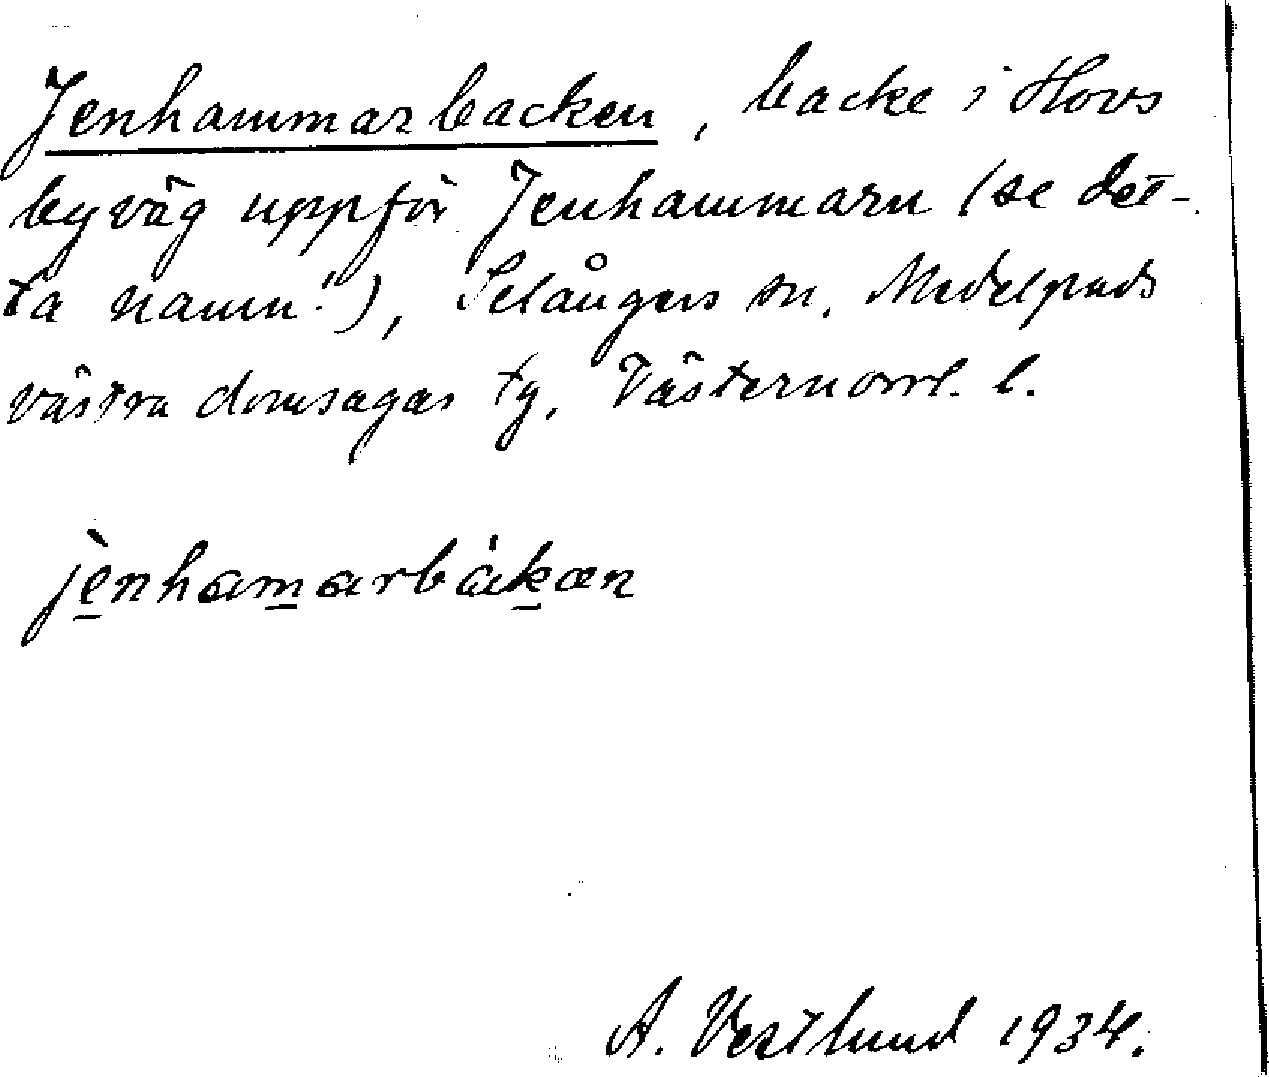 Jenhammarbacken, backe i Hovs
byväg uppför Jenhammarn (se det-
ta namn!), Selångers sn, Medelpads
västra domsagas tg, Västernorrl. l.
jènhamarbákæn
A. Vestlund 1934.